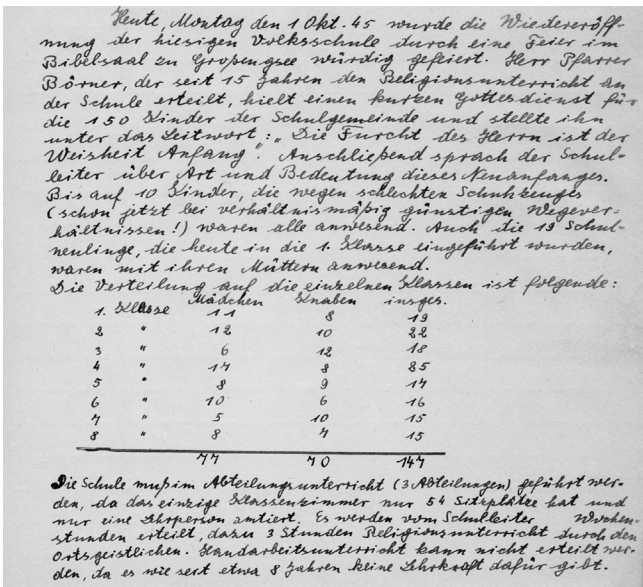 Heute, Montag den 1 Okt. 45 wurde die Wiedereröff-
nung der hiesigen Volksschule durch eine Feier im
Bibelsaal zu Großengsee würdig gefeiert. Herr Pfarrer
Börner, der seit 15 Jahren den Religionsunterricht an
der Schule erteilt, hielt einen kurzen Gottesdienst für
die 150 Kinder der Schulgemeinde und stellte ihn
unter das Leitwort: „Die Furcht des Herrn ist der
Weisheit Anfang". Anschließend sprach der Schul-
leiter über Art und Bedeutung dieses Neuanfanges.
Bis auf 10 Kinder, die wegen schlechten Schuhzeuges
(schon jetzt bei verhältnismäßig günstigen Wegever-
hältnissen!) waren alle anwesend. Auch die 19 Schul-
neulinge, die heute in die 1. Klasse eingeführt wurden,
waren mit ihren Müttern anwesend.
Die Verteilung auf die einzelnen Klassen ist folgende:
Mädchen Knaben insges.
1. Klasse 11 8 19
2 " 12 10 22
3 " 6 12 18
4 " 17 8 25
5 " 8 9 17
6 " 10 6 16
7 " 5 10 15
8 " 8 7 15
77 70 147
Die Schule muß im Abteilungsunterricht (3 Abteilungen) geführt wer-
den, da das einzige Klassenzimmer nur 54 Sitzplätze hat und
nur eine Lehrperson amtiert. Es werden vom Schulleiter Wochen-
stunden erteilt, dazu 3 Stunden Religionsunterricht durch den
Ortsgeistlichen. Handarbeitsunterricht kann nicht erteilt wer-
den, da es wie seit etwa 8 Jahren keine Lehrkraft dafür gibt.